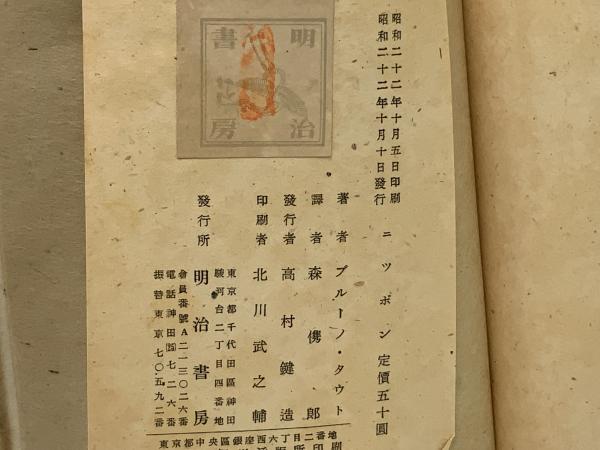 昭和二十二年十月五日印刷
昭和二十二年十月十日發行
ニッポン 定價五十圓
著者 ブルーノ・タウト
譯者 森儁郎
發行者 高村鍵造
印刷者 北川武之輔
東京都千代田區神田
駿河台二丁目四番地
發行所 明治書房
會員番號A二一三〇二六番
電話神田㉕七二六番
振替東京七〇五九二番
明治
書房
東京都中央區銀座西六丁目二番地